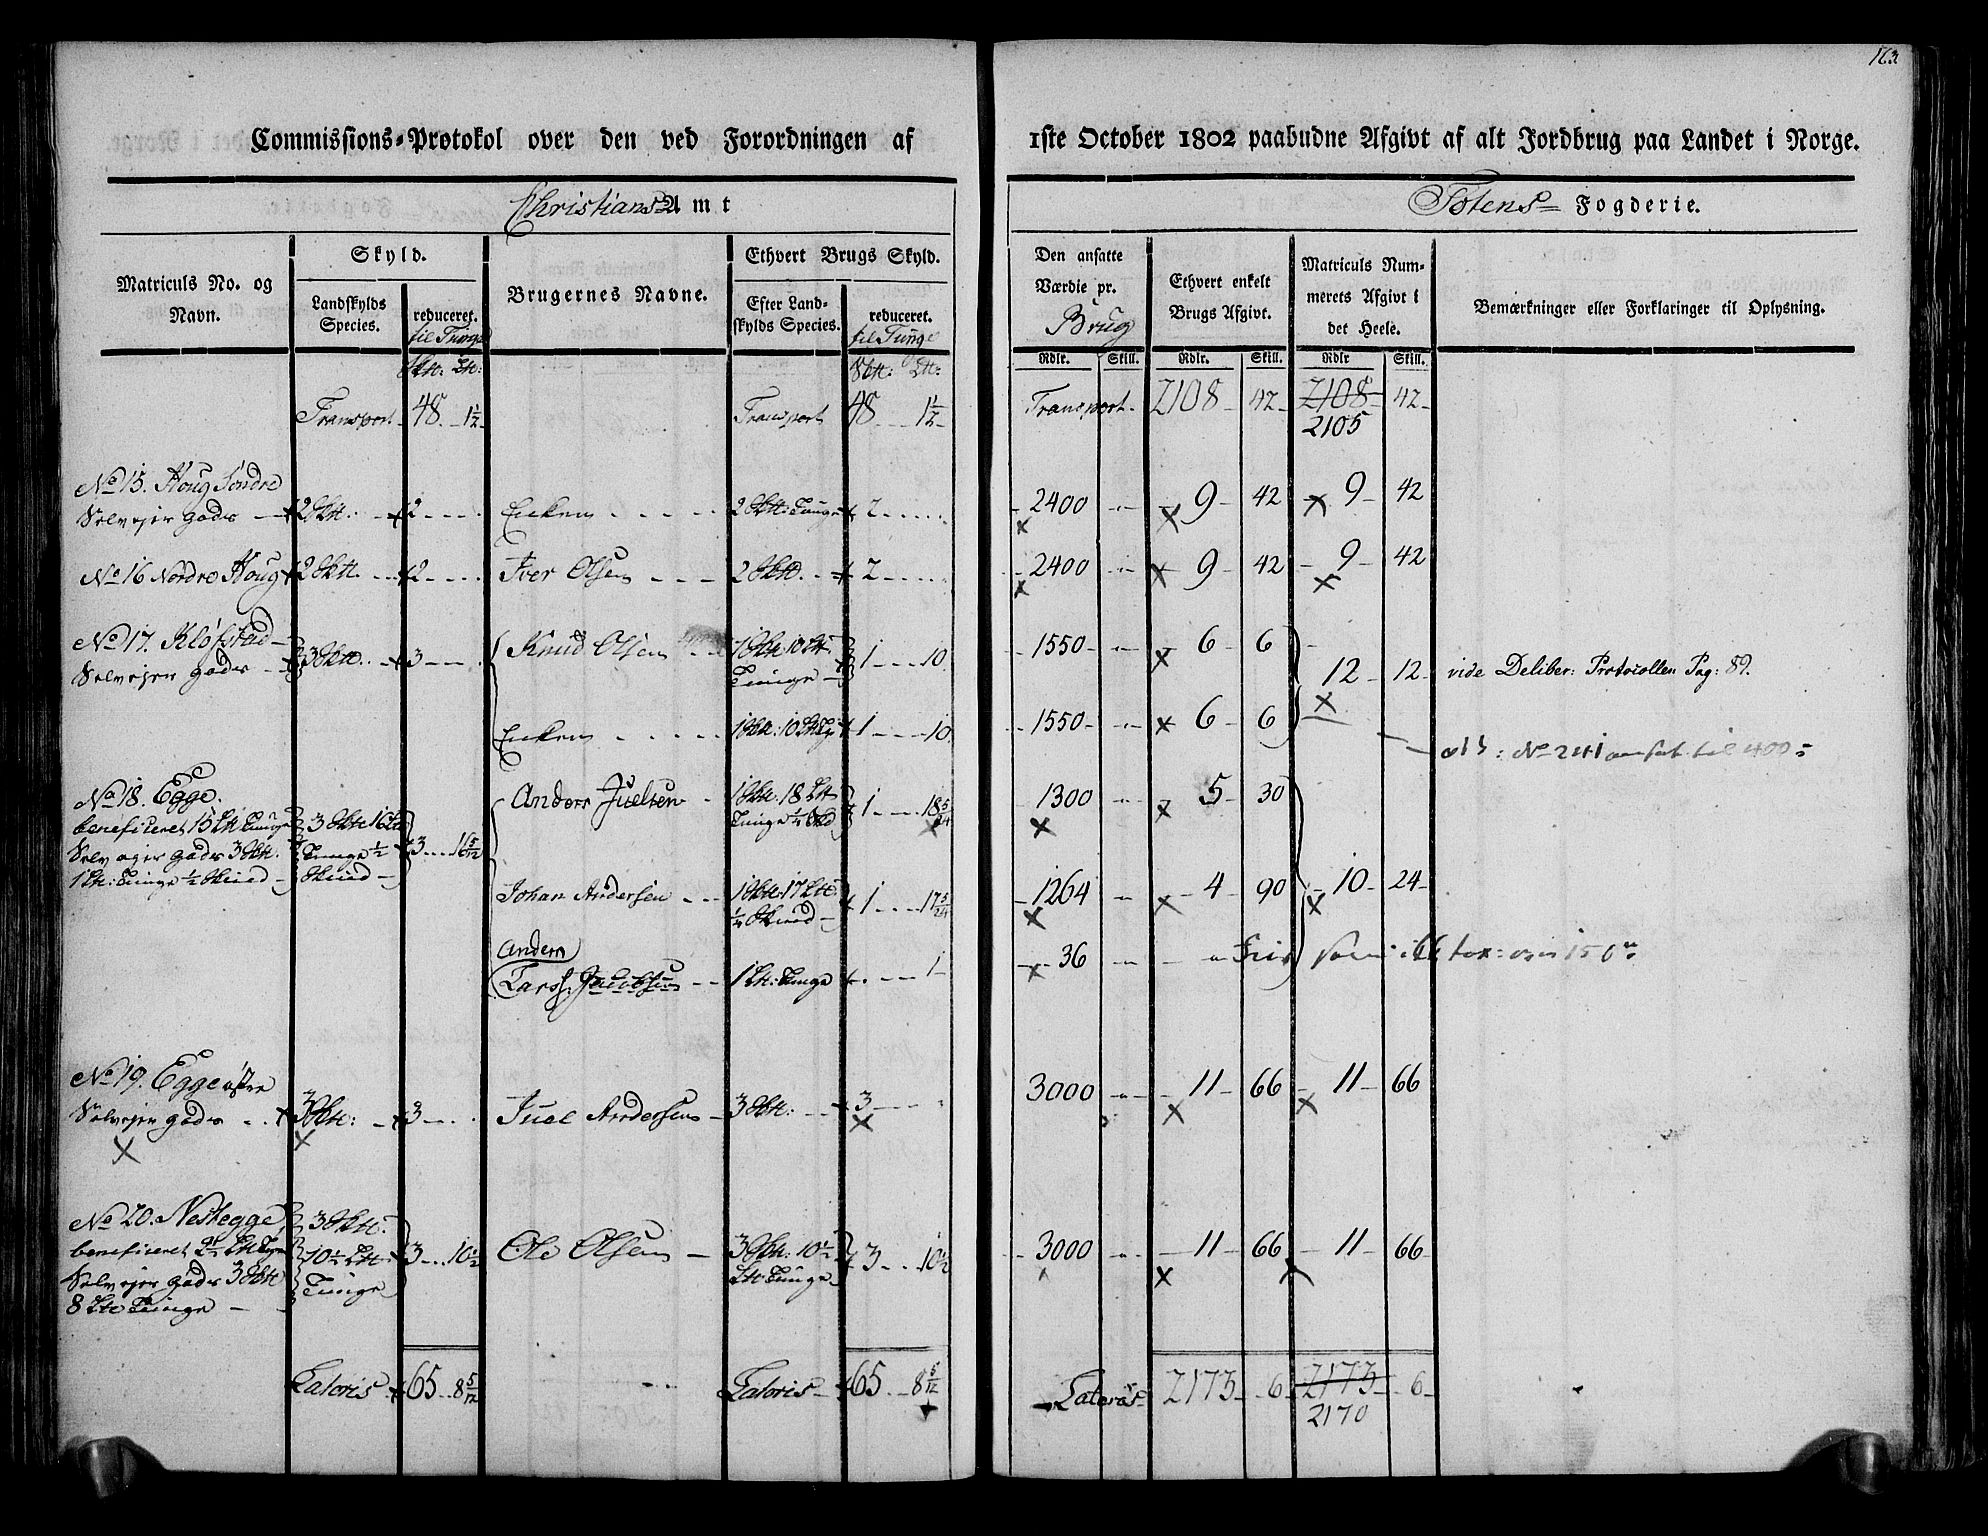 163
Commissions-Protokol over den ved Forordningen af 1ste October 1802 paabudne Afgivt af alt Jordbrug paa Landet i Norge.
Christians Amt
Totens Fogderie.
Matriculs No. og Navn.
Skyld.
Landskylds Species.
reduceret.
til Tunge
Brugernes Navne.
Ethvert Brugs Skyld.
Efter Landskylds Species.
reduceret.
til Tunge
Den ansatte Værdie pr.
Brug
Ethvert enkelt Brugs Afgivt.
Matriculs Nummerets Afgivt i det Heele.
Bemærkninger eller Forklaringer til Oplysning.
Rdlr. Skill. Rdlr. Skill. Rdlr Skill.
Transport 48 1½ Transport 48 1½ Transport 2108 42 2108 42
2105
No 15. Houg Søndre
Selvejer Gods 2 Sktt. 2 Enken 2 Sktt: Tunge 2 2400 9 42 9 42
No 16 Nordre Houg 2 Sktt. 2 Iver Olsen 2 Sktt 2 2400 9 42 9 42
No 17. Kløfstad
Selvejer Gods 3 Sktt. 3 Knud Olsen 1 Sktt 10 Ltt Tunge 1 10 1550 6 6
12 12 vide Deliber: Protocollen Pag: 89.
Enken 1 Sktt: 10 Ltt Tge 1 10 1550 6 6
No 241 ansat til 400
No 18. Egge.
beneficeret 15 Ltt Tunge
Selvejer Gods 3 Sktt.
1 Ltt: Tunge ½ Skind
3 Sktt 16 Ltt
Tunge ½
Skind
3 16 5/12
Anders Juelsen 1 Sktt: 18 Ltt
Tunge ¼ Skd 1 18 5/24 1300 5 30
Johan Andersen 1 Sktt: 17 Ltt
¼ Skind 1 17 5/24 1264 4 90 10 24
Anders
Lars Jacobsen 1 Ltt: Tunge 1 36 Frie
No 19. Egge østre
Selvejer Gods 3 Sktt: 3 Juel Andersen 3 Sktt: 3 3000 11 66 11 66
No 20. Neskegge
beneficeret 2½ Ltt Tunge
Selvejer Gods 3 Sktt
8 Ltt Tunge
3 Sktt.
10½ Ltt
Tunge
3 10½ Ole Olsen 3 Sktt: 10½
Ltt Tunge 3 10½ 3000 11 66 11 66
Lateris 65 8 5/12 Lateris 65 8 5/12 Lateris 2173 6 2173 6
2170